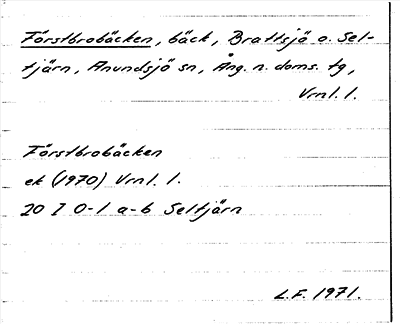 Förstbrobäcken, bäck, Brattsjö o. Sel-
tjärn, Anundsjö sn, Ång. n. doms. tg,
Vrnl. 1.
Förstbrobäcken
ek (1970) Vrnl. 1.
20 I 0-1 a-b Seltjärn
L.F. 1971.